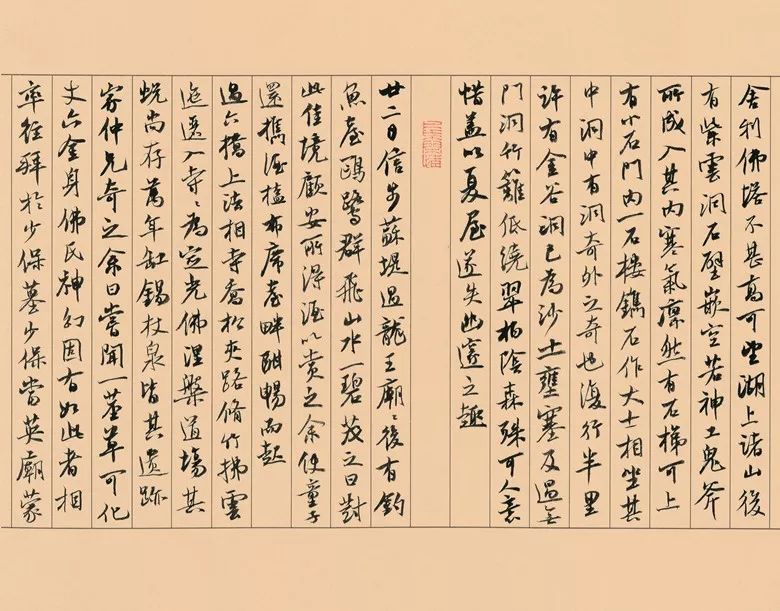 舍利佛塔不甚高可望湖上諸山後
有紫雲洞石壁嵌空若神工鬼斧
所成入其内寒氣凛然有石梯可上
有小石門内一石樓鐫石作大士相坐其
中洞中有洞奇外之奇也復行半里
許有金谷洞已為沙土壅塞及過無
門洞竹籬低繞翠柏陰森殊可人意
惜蓋以夏屋遂失幽邃之趣
廿二日信步蘇堤過龍王廟〻後有釣
魚臺鷗鷺群飛山水一碧茂之曰對
此佳境顧安所得酒以賞之余使童子
還攜酒榼布席臺畔酣暢而起
過六橋上法相寺喬松夾路脩竹拂雲
迤邐入寺〻為定光佛涅槃道場其
蛻尚存萬年缸錫杖泉皆其遺跡
家仲兄奇之余曰嘗聞一莖草可化
丈六金身佛氏神幻固有如此者相
率往拜於少保墓少保當英廟蒙